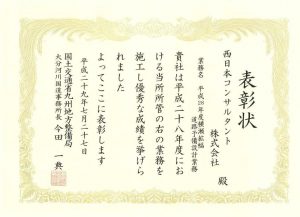 表彰状
西日本コンサルタント
株式会社 殿
業務名 平成28年度横瀬拡幅
道路予備設計業務
貴社は平成二十八年度にお
ける当所所管の右の業務を
施工し優秀な成績を挙げら
れました
よってここに表彰します
平成二十九年七月二十七日
国土交通省九州地方整備局
大分河川国道事務所長 今田 一典